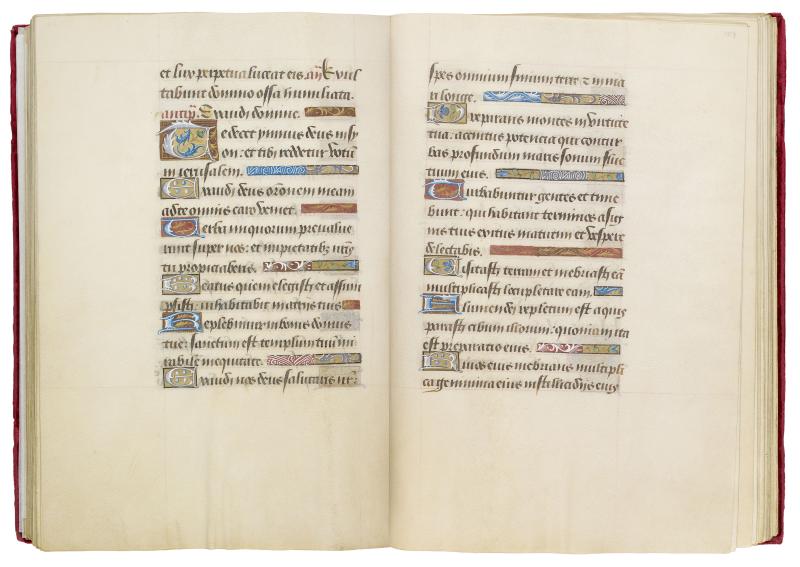 et lux perpetua luceat eis. an̄ Exul
tabunt domino ossa humiliata.
antip̄. Exaudi domine.
Te decet ymnus deus in sy
on: et tibi reddetur votū
in ierusalem.
Exaudi deus orōnem meam
ad te omnis caro veniet.
Verba iniquorum preualue
runt super nos: et impietatibꝫ nr̄is
tu propiciaberis.
Beatus quem elegisti et assum
psisti: inhabitabit in atriis tuis
Replebimur in bonis domus
tue: sanctum est templum tuū mi
rabile in equitate.
Exaudi nos deus salutaris nr̄:
spes omnium finium terre et in ma
ri longe.
Preparans montes in virtute
tua: accinctus potencia qui contur
bas profundum maris sonum fluc
tuum eius.
Turbabuntur gentes et time
bunt: qui habitant terminos a sig
nis tuis exitus matutini et vespere
delectabis.
Visitasti terram et inebriasti eā
multiplicasti locupletare eam.
Flumen dei repletum est aquis
parasti cibum illorum: quoniam ita
est preparatio eius.
Riuos eius inebrians multipli
ca genimina eius in stillicidiis eius